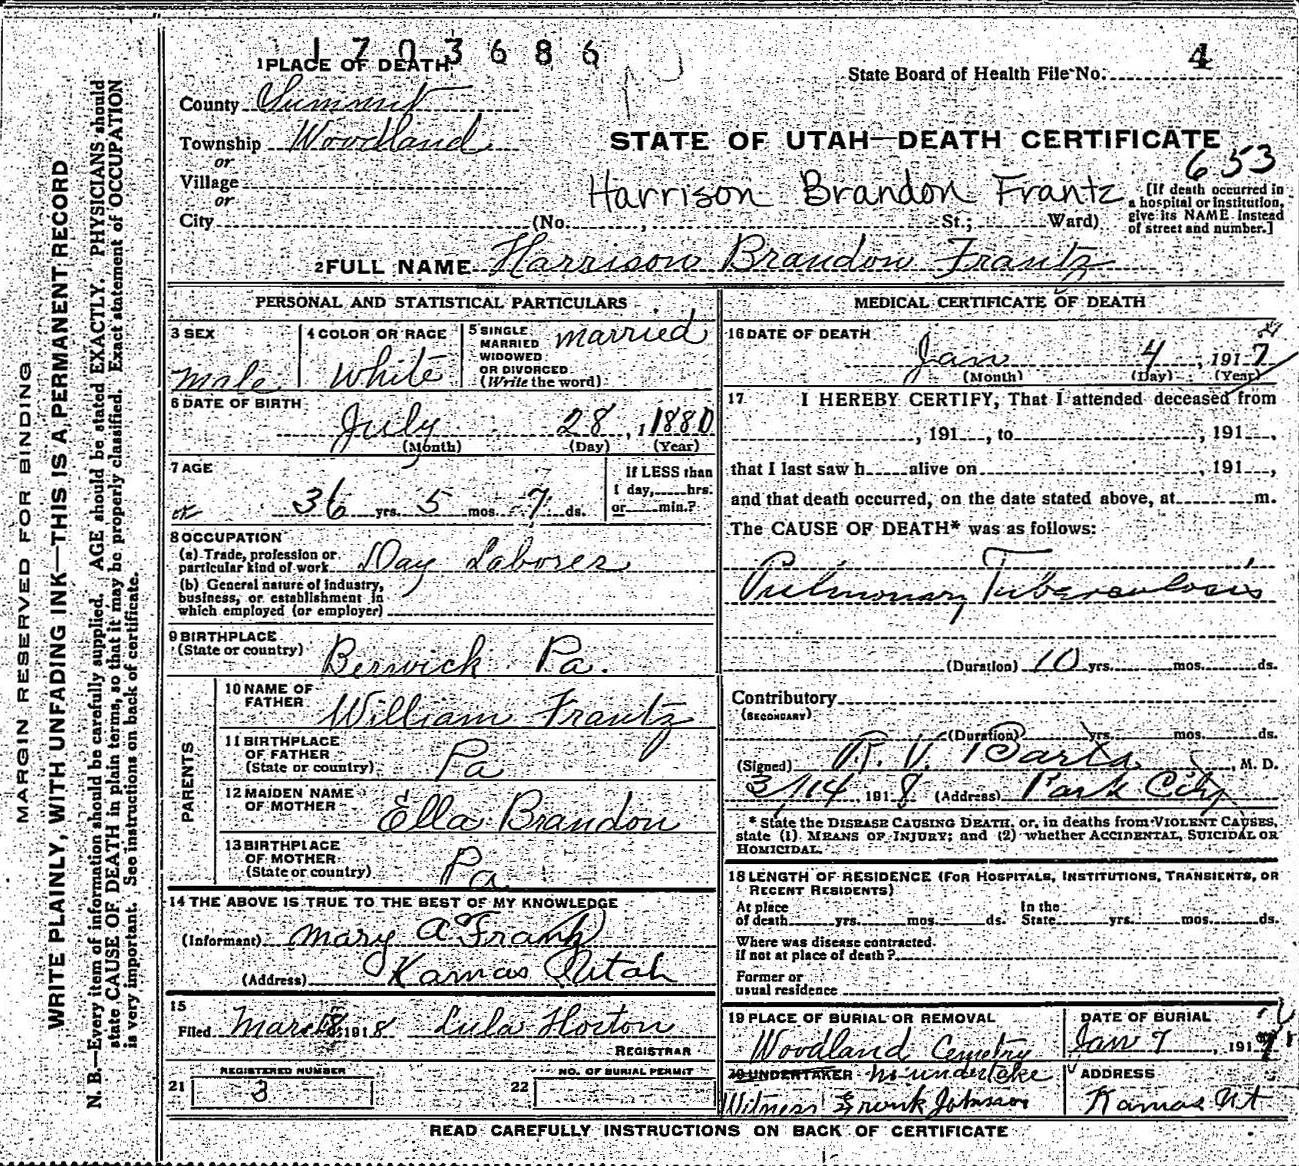 1703686
1 PLACE OF DEATH
State Board of Health File No. 4
County Summit
Township Woodland
or
Village
or
City (No. , St.; Ward)
STATE OF UTAH—DEATH CERTIFICATE
653
Harrison Brandon Frantz
[If death occurred in
a hospital or institution,
give its NAME instead
of street and number.]
2 FULL NAME Harrison Brandon Frantz
PERSONAL AND STATISTICAL PARTICULARS
3 SEX
Male
4 COLOR OR RACE
White
5 SINGLE
MARRIED
WIDOWED
OR DIVORCED
(Write the word)
married
6 DATE OF BIRTH
July 28, 1880
(Month) (Day) (Year)
7 AGE
36 yrs. 5 mos. 7 ds.
If LESS than
1 day, hrs.
or min.?
8 OCCUPATION
(a) Trade, profession or
particular kind of work Day Laborer
(b) General nature of industry,
business, or establishment in
which employed (or employer)
9 BIRTHPLACE
(State or country) Berwick Pa.
PARENTS
10 NAME OF
FATHER William Frantz
11 BIRTHPLACE
OF FATHER
(State or country) Pa
12 MAIDEN NAME
OF MOTHER Ella Brandon
13 BIRTHPLACE
OF MOTHER
(State or country) Pa
14 THE ABOVE IS TRUE TO THE BEST OF MY KNOWLEDGE
(Informant) Mary A Frantz
(Address) Kamas Utah
15
Filed Mar 1918 Lula Horton
REGISTRAR
REGISTERED NUMBER
21 3
NO. OF BURIAL PERMIT
22
MEDICAL CERTIFICATE OF DEATH
16 DATE OF DEATH
Jan 4, 1917
(Month) (Day) (Year)
17 I HEREBY CERTIFY, That I attended deceased from
, 191 , to , 191 ,
that I last saw h alive on , 191 ,
and that death occurred, on the date stated above, at m.
The CAUSE OF DEATH* was as follows:
Pulmonary Tuberculosis
(Duration) 10 yrs. mos. ds.
Contributory
(SECONDARY)
(Duration) yrs. mos. ds.
(Signed) R. V. , M. D.
3/14, 1918 (Address) Park City
* State the DISEASE CAUSING DEATH, or, in deaths from VIOLENT CAUSES,
state (1) MEANS OF INJURY; and (2) whether ACCIDENTAL, SUICIDAL OR
HOMICIDAL.
18 LENGTH OF RESIDENCE (FOR HOSPITALS, INSTITUTIONS, TRANSIENTS, OR
RECENT RESIDENTS)
At place
of death yrs. mos. ds.
In the
State yrs. mos. ds.
Where was disease contracted,
if not at place of death?
Former or
usual residence
19 PLACE OF BURIAL OR REMOVAL
Woodland Cemetry
DATE OF BURIAL
Jan 7, 1917
20 UNDERTAKER no undertake
Witness Frank Johnson
ADDRESS
Kamas Ut
READ CAREFULLY INSTRUCTIONS ON BACK OF CERTIFICATE
MARGIN RESERVED FOR BINDING
WRITE PLAINLY, WITH UNFADING INK—THIS IS A PERMANENT RECORD
N. B.—Every item of information should be carefully supplied. AGE should be stated EXACTLY. PHYSICIANS should
state CAUSE OF DEATH in plain terms, so that it may be properly classified. Exact statement of OCCUPATION
is very important. See instructions on back of certificate.